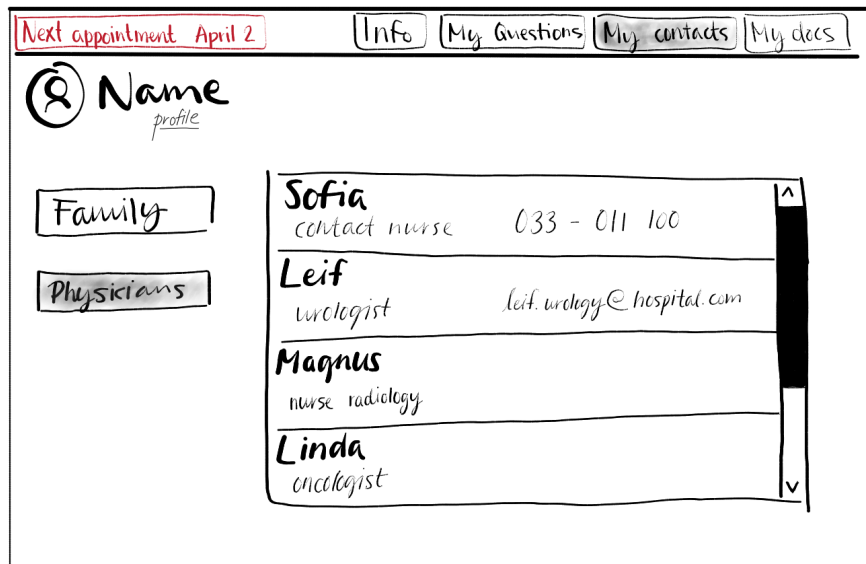 Next appointment April 2
Info
My Questions
My contacts
My docs
Name
profile
Family
Physicians
Sofia
contact nurse 033 - 011 100
Leif
urologist leif.urology@hospital.com
Magnus
nurse radiology
Linda
oncologist